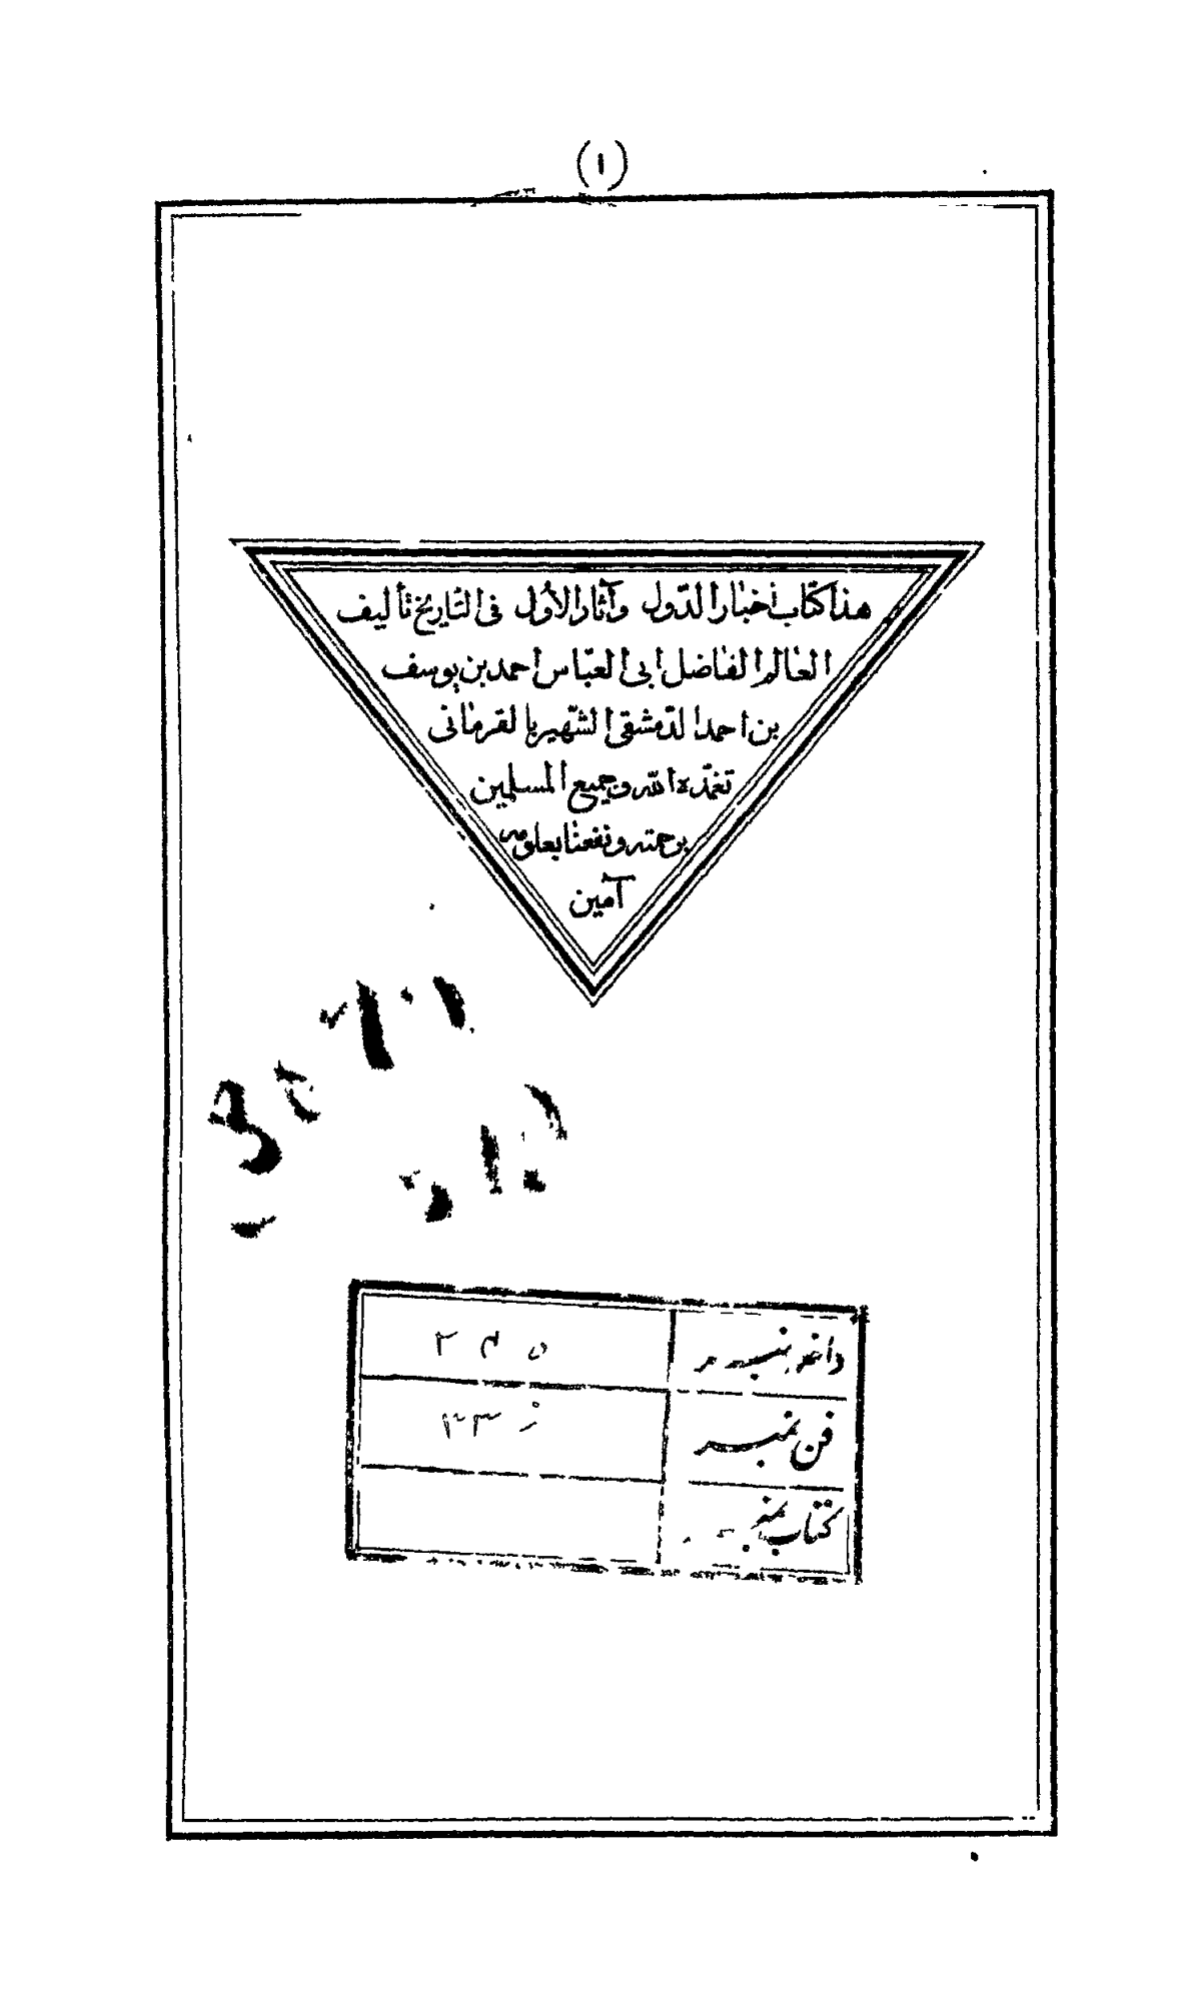 (١)
هذا كتاب أخبار الدّول وآثار الأول فى التاريخ تأليف
العالم الفاضل ابى العبّاس احمد بن يوسف
بن احمد الدّمشقى الشهير بالقرمانى
تغمّده الله وجميع المسلمين
برحمته ونفعنا بعلومه
آمين
داخله نمبر
فن نمبر
كتاب نمبر